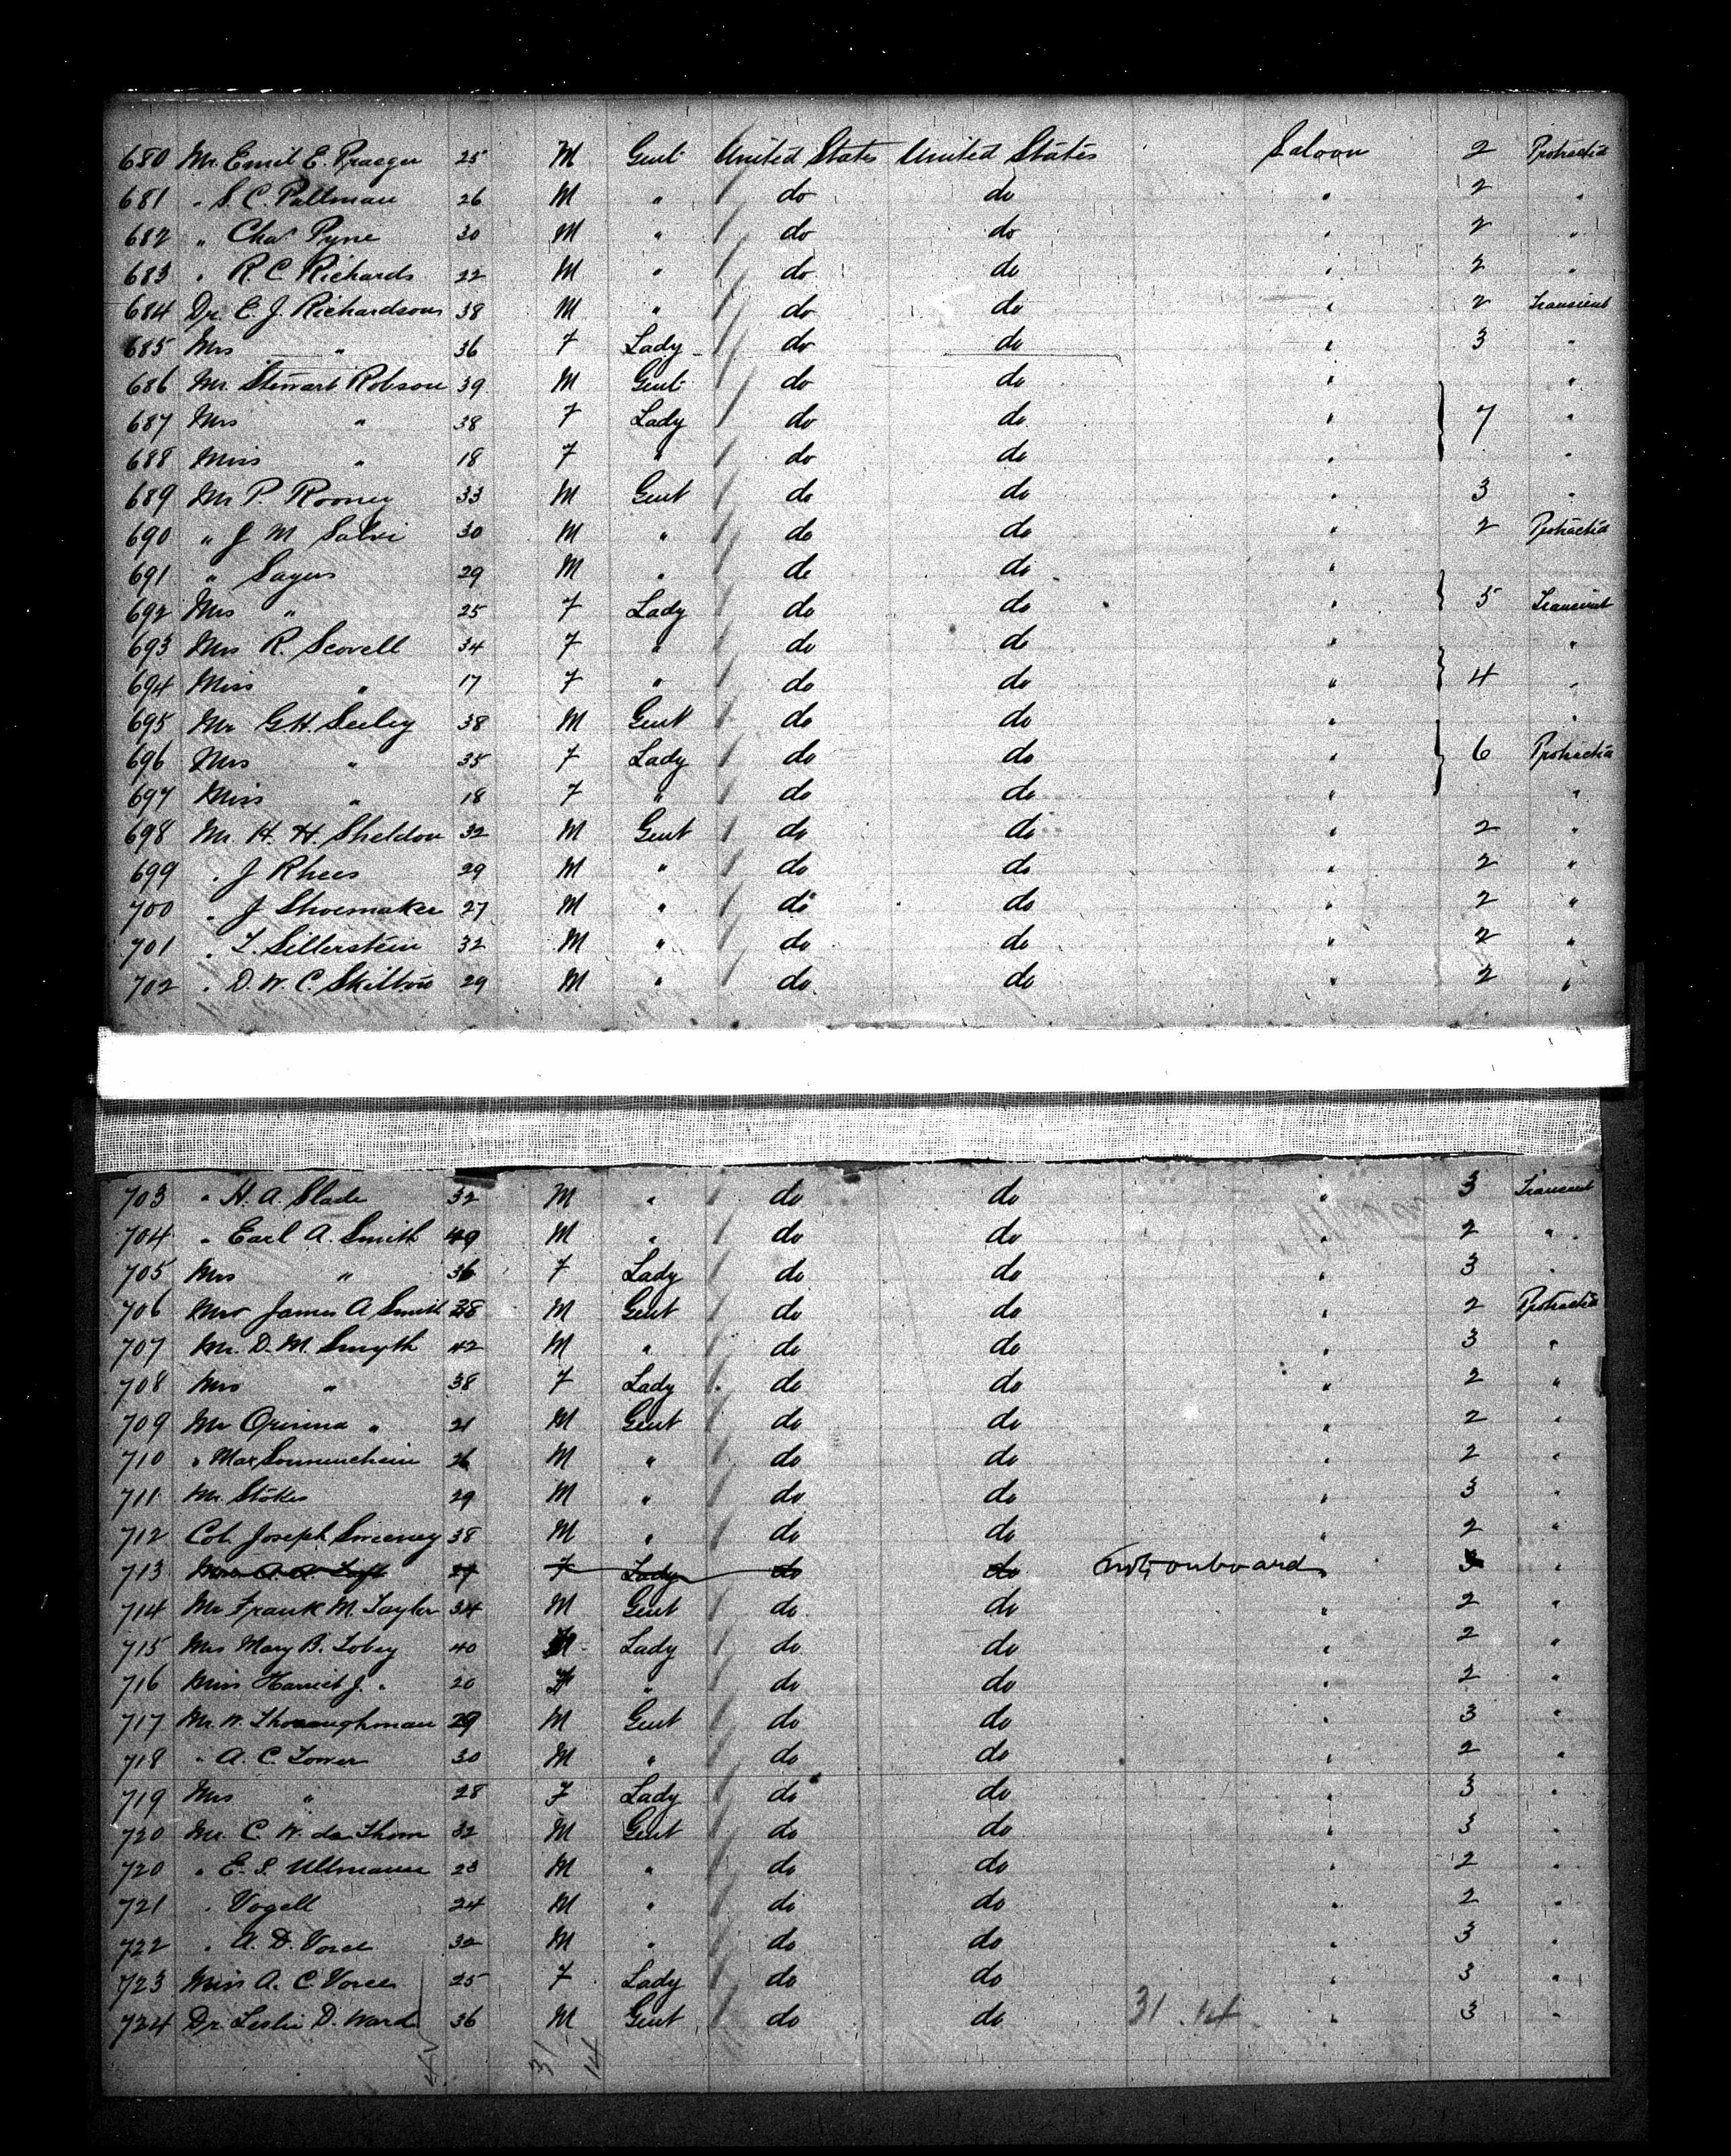 680 Mr. Emil E. Praeger 25 M Gent United States United States Saloon 2 Protracted
681 " S. C. Pullman 26 M " do do " 2 "
682 " Chas Pyne 30 M " do do " 2 "
683 " R. C. Richards 22 M " do do " 2 "
684 Dr. E. J. Richardson 38 M " do do " 2 Transient
685 Mrs " 36 F Lady do do " 3 "
686 Mr. Stewart Robson 39 M Gent do do " "
687 Mrs " 38 F Lady do do " 7 "
688 Miss " 18 F " do do " "
689 Mr P. Rooney 33 M Gent do do " 3 "
690 " J M Salvi 30 M " do do " 2 Protracted
691 " Sayers 29 M " do do "
692 Mrs " 25 F Lady do do " 5 Transient
693 Mrs R. Scovell 34 F " do do " "
694 Miss " 17 F " do do " 4 "
695 Mr G. H. Seeley 38 M Gent do do " "
696 Mrs " 35 F Lady do do " 6 Protracted
697 Miss " 18 F " do do " "
698 Mr. H. H. Sheldon 32 M Gent do do " 2 "
699 " J Rhees 29 M " do do " 2 "
700 " J Shoemaker 27 M " do do " 2 "
701 " Silterstein 32 M " do do " 2 "
702 " D. W. C. Skilton 29 M " do do " 2 "
703 " H. A. Slade 32 M " do do " 3 Transient
704 " Earl A. Smith 49 M " do do " 2 "
705 Mrs " 36 F Lady do do " 3 "
706 James A Smith 38 M Gent do do " 2 Protracted
707 Mr. D. M. Smyth 42 M " do do " 3 "
708 Mrs " 38 F Lady do do " 2 "
709 Mr " 21 M Gent do do " 2 "
710 " Max Sonnenchein 26 M " do do " 2 "
711 Mr. Stokes 29 M " do do " 3 "
712 Col. Joseph Sweeney 38 M " do do " 2 "
713 A. A. Taft 27 F Lady do do not onboard " 3 "
714 Mr Frank M. Taylor 34 M Gent do do " 2 "
715 Mrs Mary B. Tobey 40 Lady do do " 2 "
716 Miss Harriet J. " 20 F " do do " 2 "
717 Mr. W. Thoroughman 29 M Gent do do " 3 "
718 " A. C. Tower 30 M " do do " 2 "
719 Mrs " 28 F Lady do do " 3 "
720 Mr. C. W. de Thom 32 M Gent do do " 3 "
720 " E. S. Ullmann 23 M " do do " 2 "
721 " Vogell 24 M " do do " 2 "
722 " A. D. Vorce 32 M " do do " 3 "
723 Miss A. C. Vorce 25 F Lady do do " 3 "
724 Dr. Leslie D. Ward 36 M Gent do do 31 . 14 " 3 "
31 14